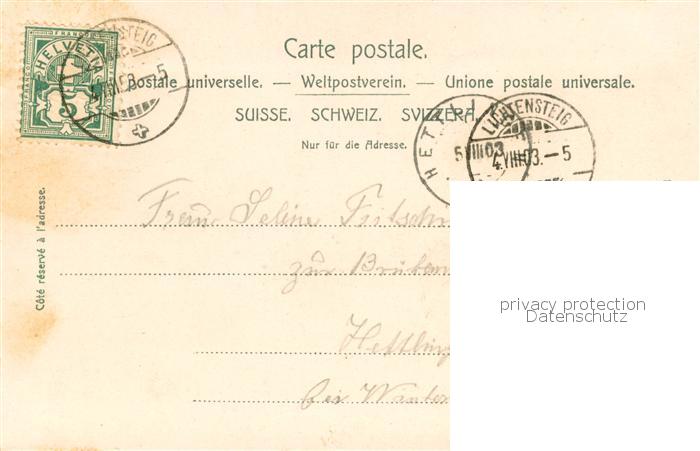 FRANCO
HELVETIA
5
LICHTENSTEIG
VIII.03.–5
Carte postale.
postale universelle. — Weltpostverein. — Unione postale universale.
SUISSE. SCHWEIZ. SVIZZERA.
Nur für die Adresse.
HETTLI
5 VIII 03
LICHTENSTEIG
4.VIII.03.–5
Côté réservé à l'adresse.
Frau Seline Fritsch
zur
Hettling
bei Winter
privacy protection
Datenschutz